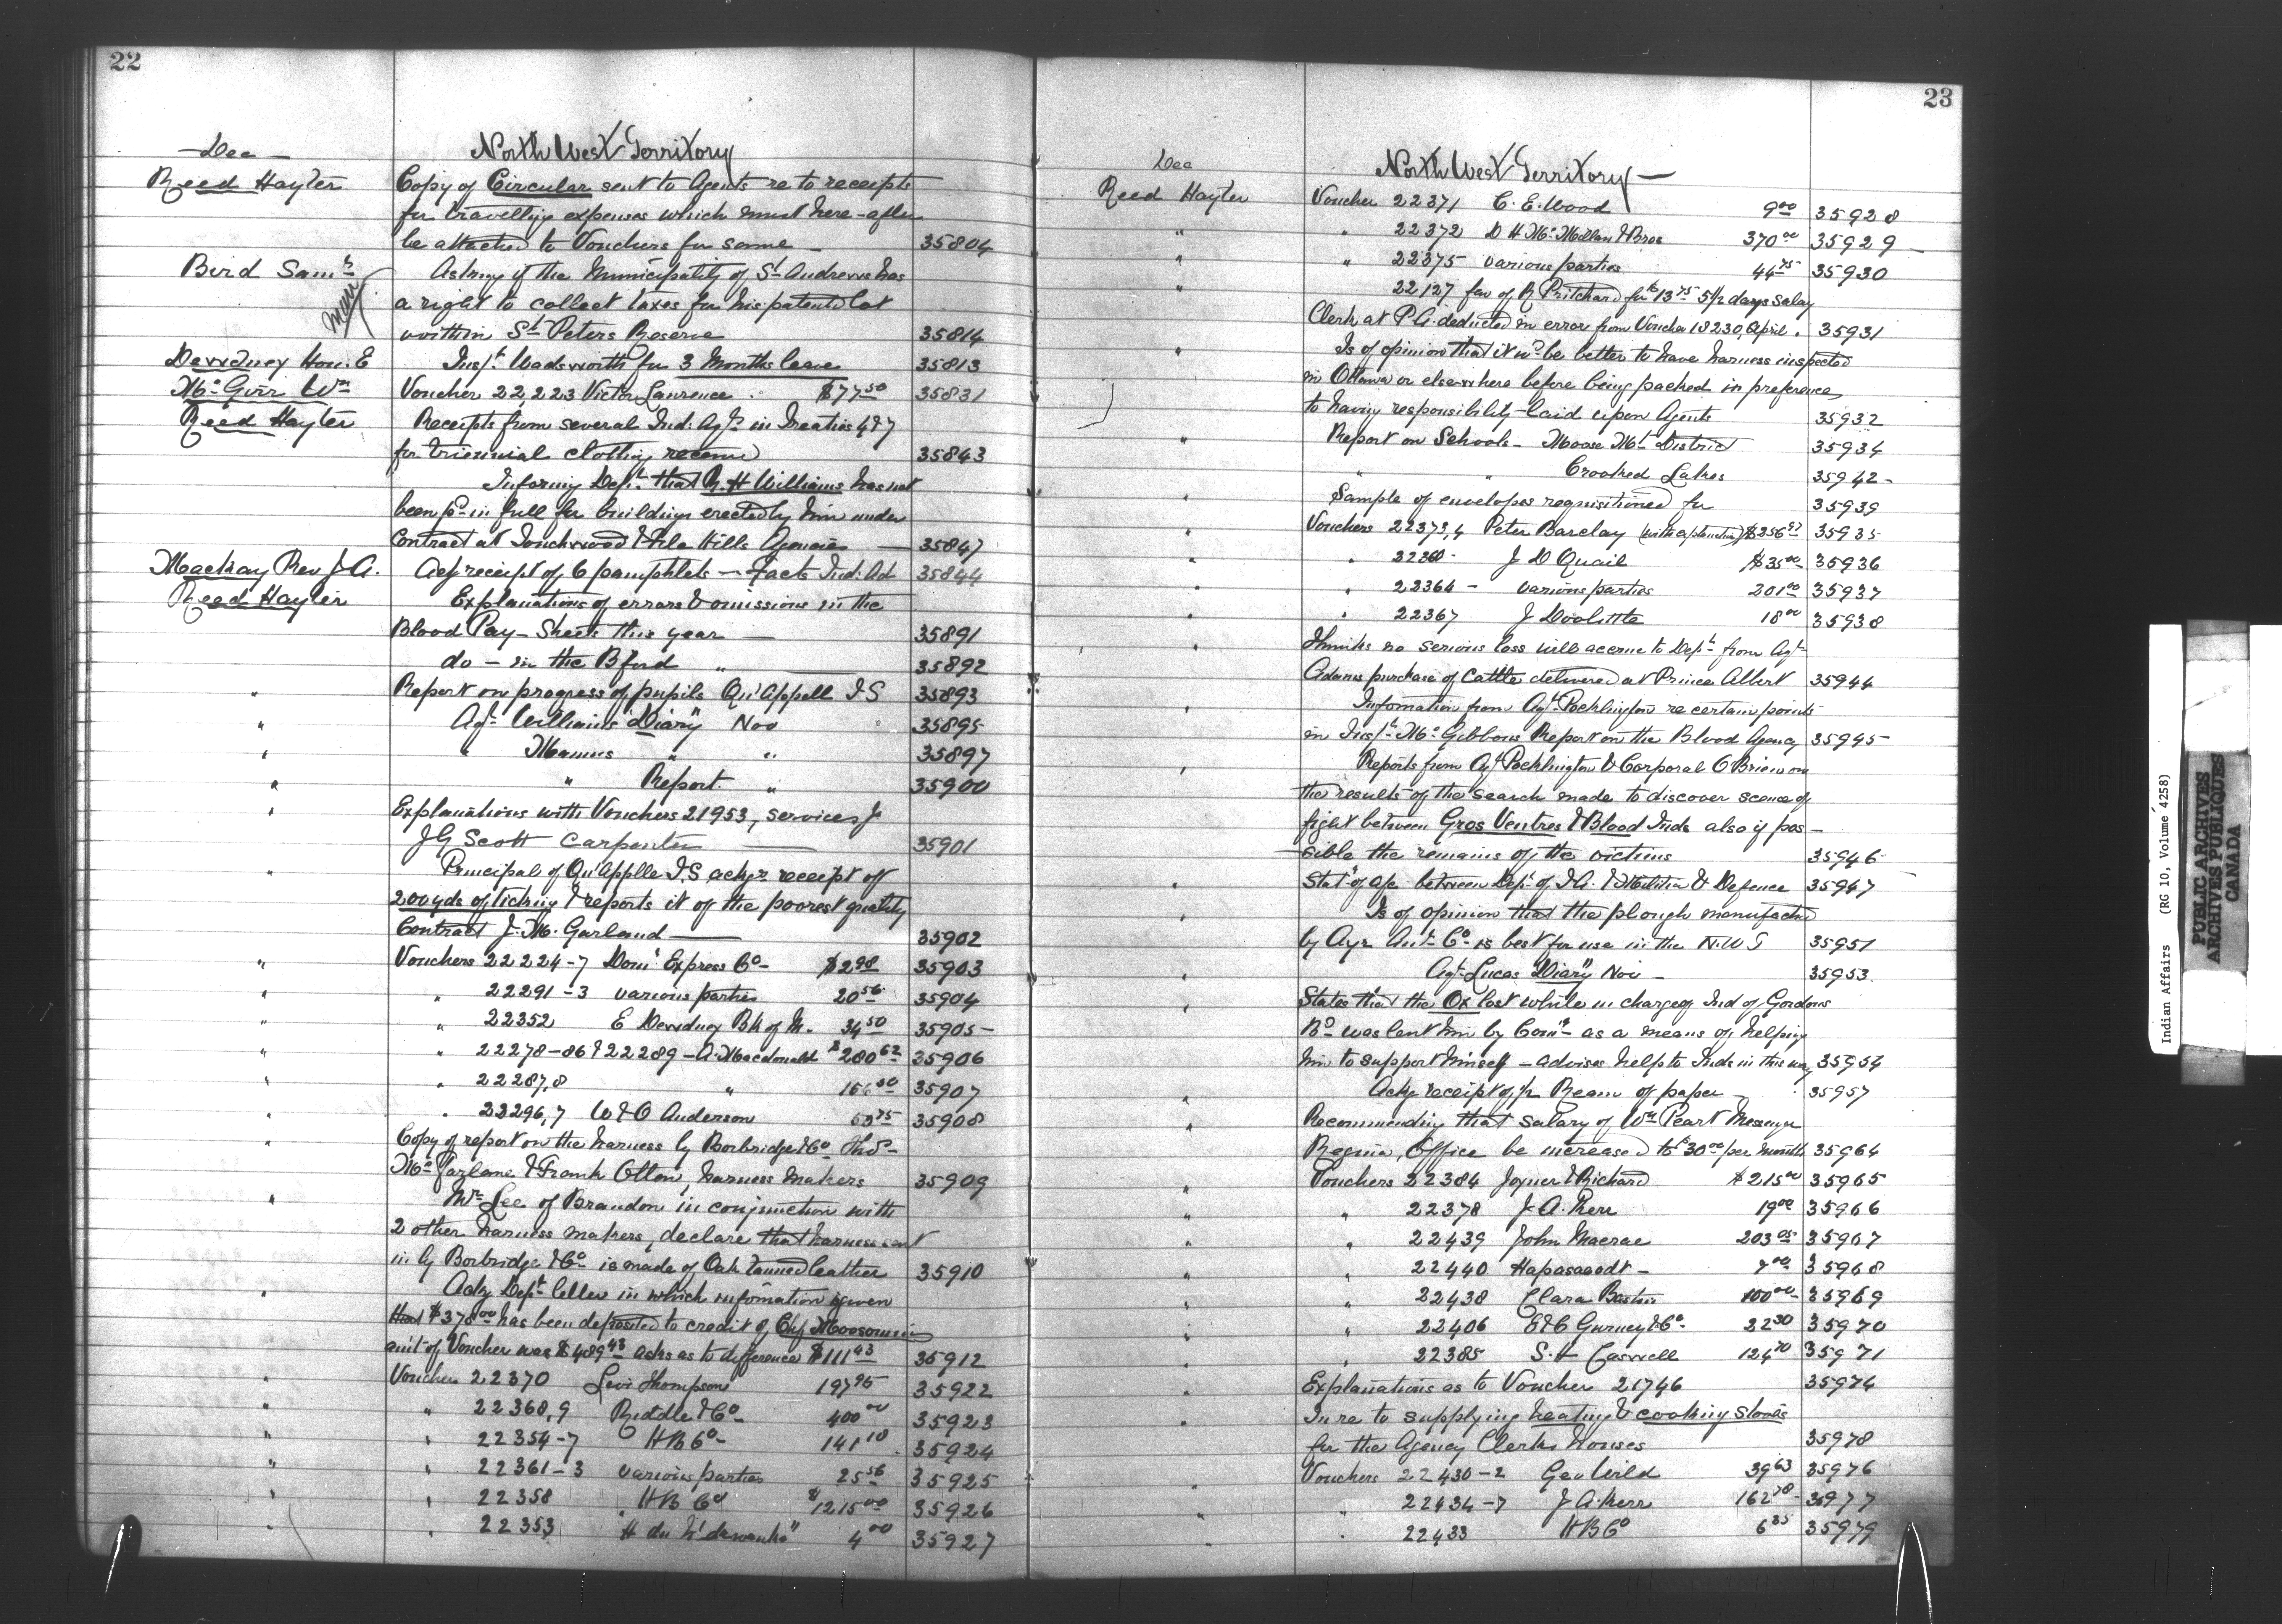 22
Dec
North West Territory
Reed Hayter Copy of Circular sent to Agents re to receipts
for travelling expenses which must here-after
be attached to Vouchers for same 35804
Bird Saml Asking if the Municipality of St Andrews has
a right to collect taxes for his patented lot
within St Peters Reserve 35814
Dewdney Hon. E Inspt. Wadsworth for 3 Months leave 35813
Voucher 22,223 Victor Laurence $77.50 35831
Reed Hayter Receipts from several Ind. Agts in Treaties 4 & 7
for triennial clothing received 35843
Informing Dept. that R. H Williams has not
been pd in full for buildings erected by him under
Contract at Touchwood & File Hills Agencies 35847
Mackay Rev J. A. Ackg receipt of 6 pamphlets — Facts Ind. Ad 35844
Reed Hayter Explanations of errors & omissions in the
Blood Pay-Sheets this year — 35891
do — in the Bford " 35892
" Report on progress of pupils Qu'Appell I S 35893
" Agt. Williams "Diary" Nov 35895
" " Mannus " " 35897
" " Report. " 35900
" Explanations with Vouchers 21953, services of
J G Scott Carpenter 35901
" Principal of Qu'Applle I.S. ackgs receipt of
200 yds of ticking & reports it of the poorest quality
Contract J. M. Garland 35902
" Vouchers 22224-7 Domn Express Co $2.98 35903
" " 22291-3 various parties 20.56 35904
" " 22352 E Dewdney Bk of M. 34.50 35905
" " 22278-86 & 22289 - A. Macdonald $280.62 35906
" " 22287,8 " 35907
" " 22296,7 W & O Anderson 35908
" Copy of report on the harness by Borbridge & Co Thos
McFarlane & Frank Olton, harness makers 35909
" Mr Lee of Brandon in conjunction with
2 other harness makers, declare that harness sent
in by Borbridge & Co is made of Oak Tanned leather 35910
" Ackg Dept letter in which information is given
that $378.00 has been deposited to credit of Chf Moosomin
amt of Voucher was $489.43 asks as to difference $111.43 35912
" Voucher 22370 Levi Thompson 197.95 35922
" " 22368,9 Riddle & Co 400.00 35923
" " 22354-7 H B Co 141.10 35924
" " 22361-3 various parties 25.56 35925
" " 22358 H B Co $1215.00 35926
" " 22353 4.00 35927
23
Dec
North West Territory
Reed Hayter Voucher 22371 C. E. Wood 9.00 35928
" " 22372 D H McMillan & Bros 370.00 35929
" " 22375 various parties 44.75 35930
" 22127 fav of R Pritchard for $13.75 5 1/2 days salary
Clerk at P A. deducted in error from Voucher 18230, April. 35931
" Is of opinion that it wd be better to have harness inspected
in Ottawa or elsewhere before being packed in preference
to having responsibility laid upon Agents 35932
" Report on Schools - Moose Mt District 35934
" " Crooked Lakes 35942
" Sample of envelopes requisitioned for 35939
" Vouchers 22373,4 Peter Barclay 35935
" " J D Quail $35.00 35936
" " 22364 - various parties 201.00 35937
" " 22367 J Doolittle 18.00 35938
" Thinks no serious loss will accrue to Dept from Agt
Adams purchase of Cattle delivered at Prince Albert 35944
" Information from Agt. Pocklington re certain points
in Inspt. McGibbons Report on the Blood Agency 35945
" Reports from Agt Pocklington & Corporal O'Brien on
the results of the search made to discover scene of
fight between Gros Ventres & Blood Inds also if pos-
sible the remains of the victims 35946
" Statt of a/c between Dept of I.A. & Militia & Defence 35947
" Is of opinion that the plough manufactd
by Ayr Co is best for use in the N.W T 35951
" Agt. Lucas "Diary" Nov 35953
" States that the Ox lost while in charge of Ind of Gordons
Rs was lent him by Comr as a means of helping
him to support himself - advises help to Inds in this way 35954
" Ackg receipt of Ream of paper 35957
" Recommending that salary of Wm Peart Messenger
Regina, Office be increased to $30.00 per month 35964
" Vouchers 22384 Joyner & Richard $215.00 35965
" " 22378 J. A. Kerr 19.00 35966
" " 22439 John Macrae 203.05 35967
" " 22440 35968
" " 22438 Clara 100.00 35969
" " 22406 E & C Gurney & Co 22.30 35970
" " 22385 S. H Caswell 124.70 35971
" Explanations as to Voucher 21746 35974
" In re to supplying heating & cooking stoves
for the Agency Clerks houses 35978
" Vouchers 22430-2 Geo Wild 39.63 35976
" " 22434-7 J A. Kerr 35977
" " 22433 H B Co 6.35 35979
Indian Affairs (RG 10, Volume 4258)
PUBLIC ARCHIVES
ARCHIVES PUBLIQUES
CANADA